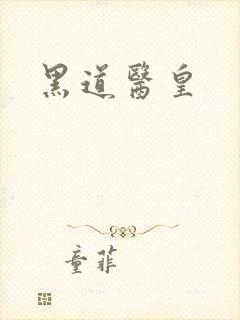 黑道醫皇
童菲